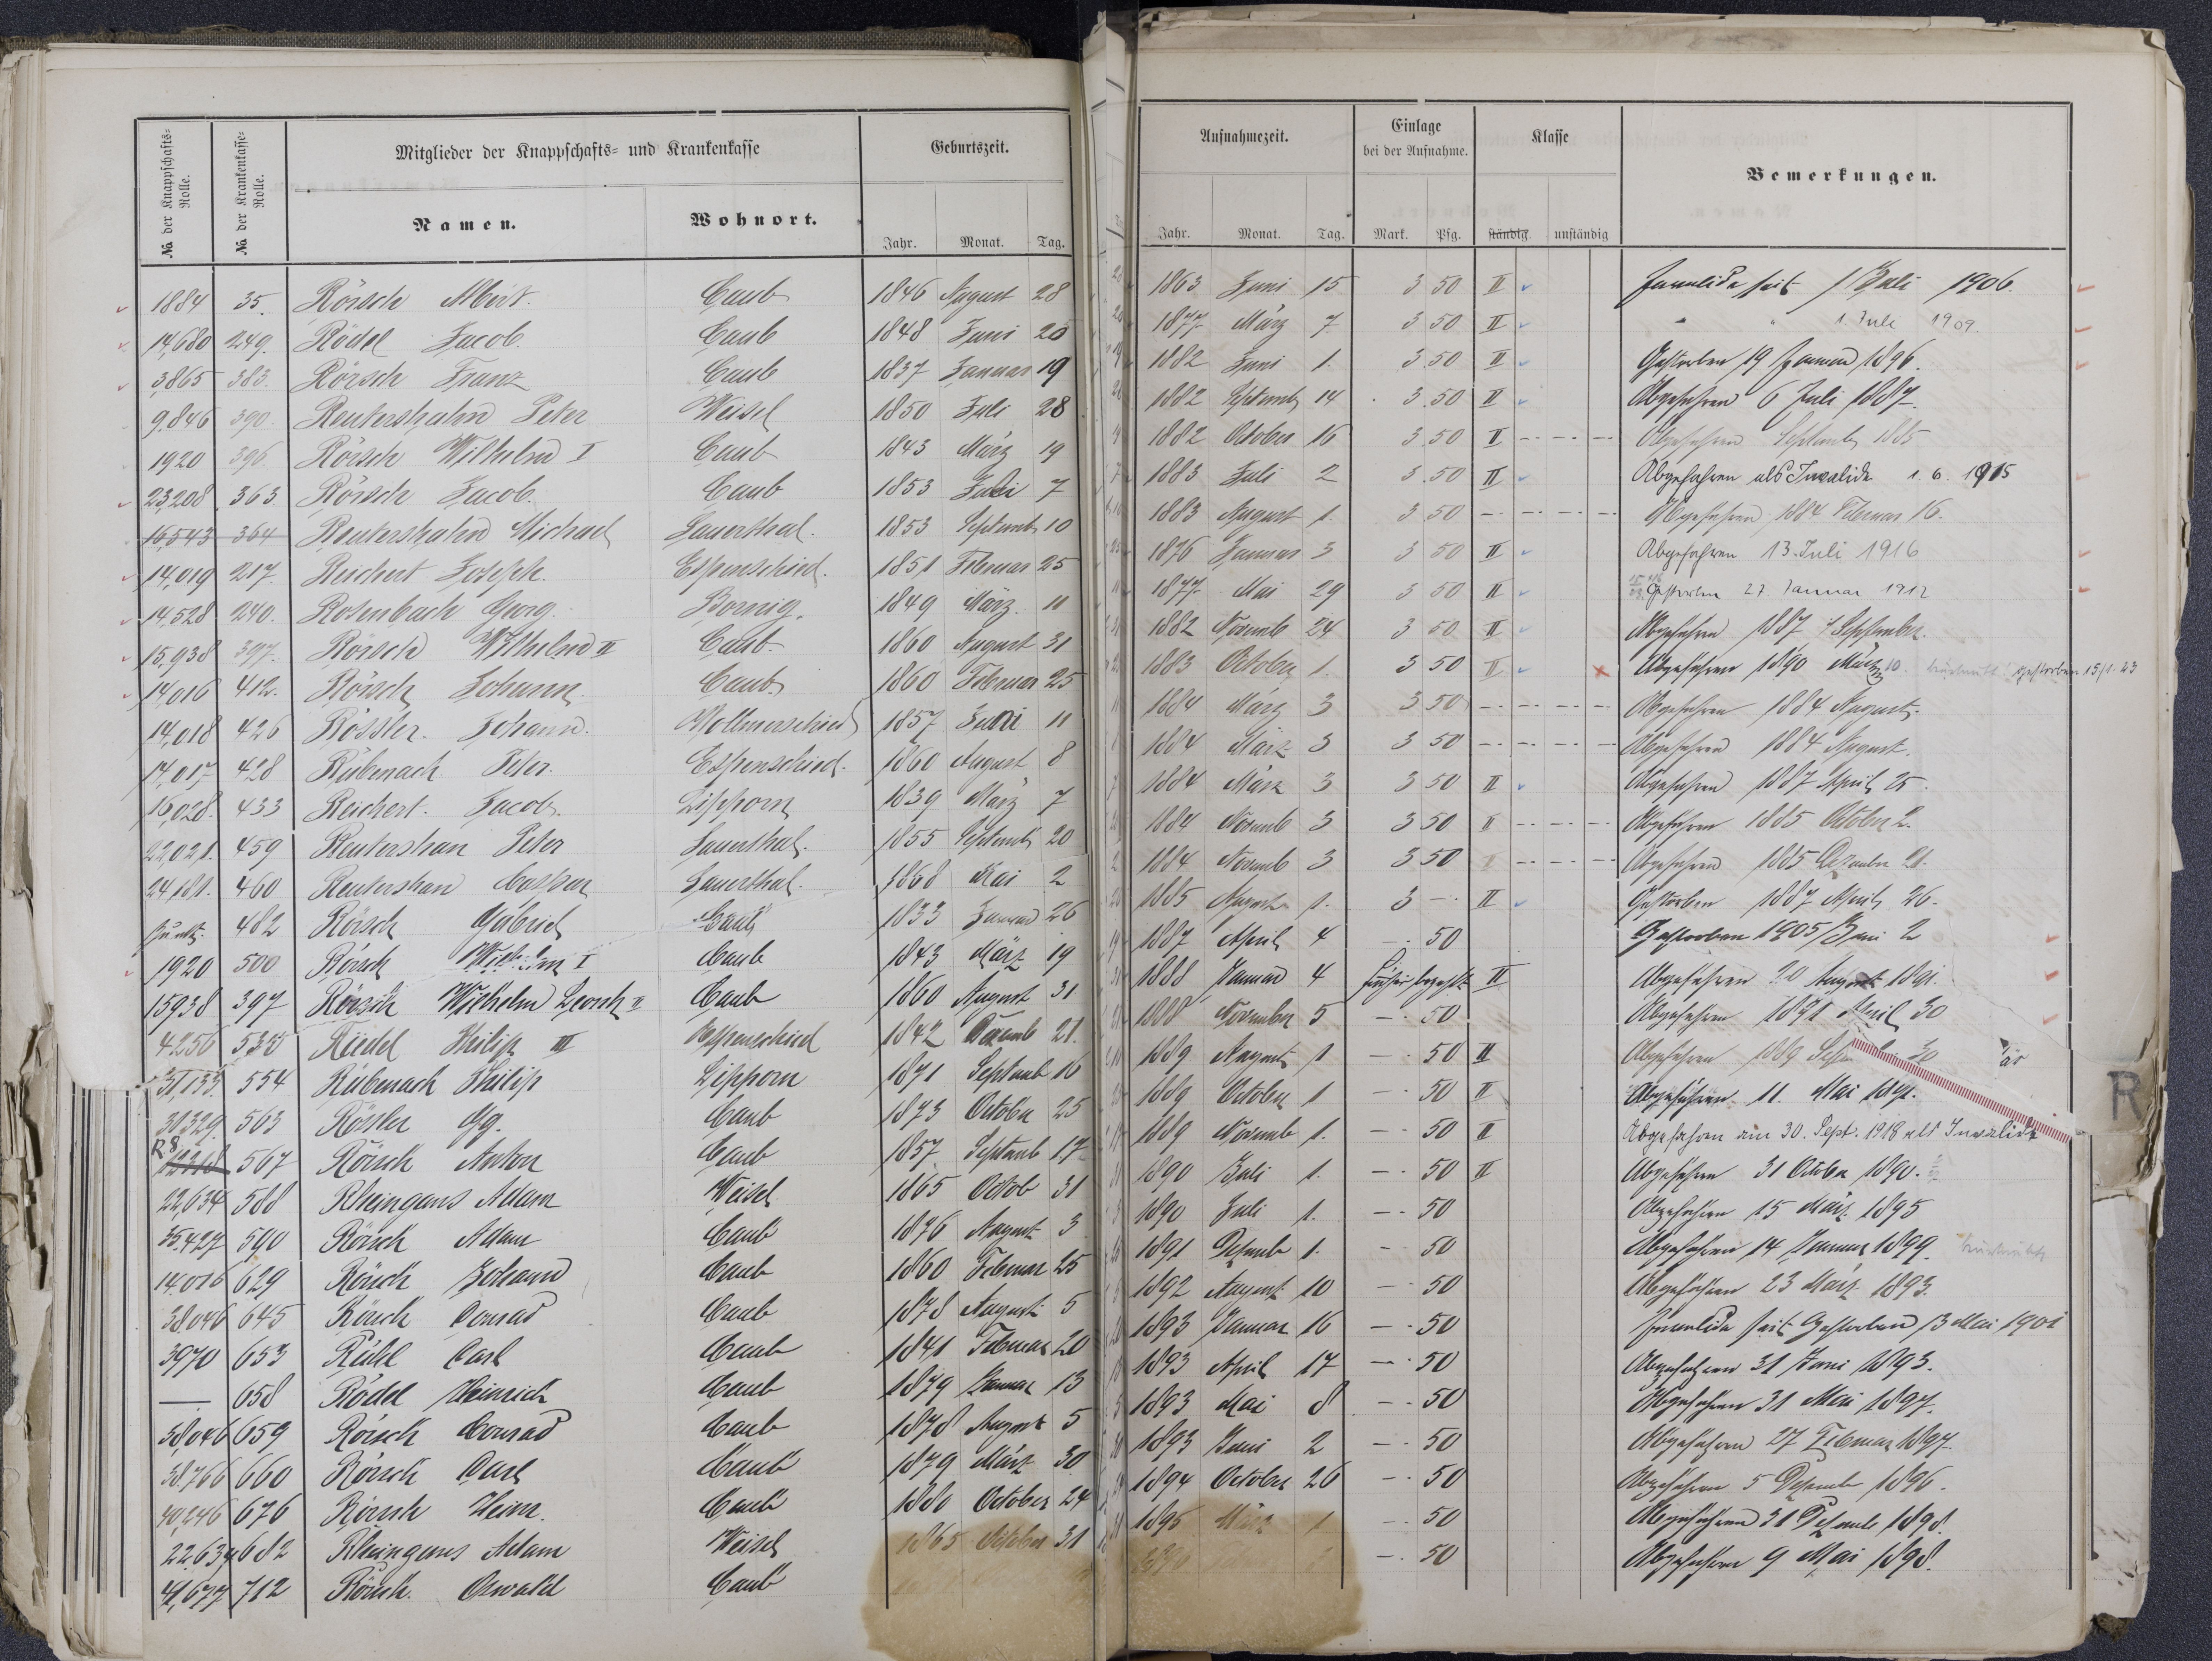 No. der Knappschafts-Rolle. No. der Krankenkasse-Rolle. Mitglieder der Knappschafts- und Krankenkasse Geburtszeit.
Namen. Wohnort. Jahr. Monat. Tag.
1884 35. Rörsch Caub 1846 August 28
14,680 249. Rödel Jacob. Caub 1848 Juni 20
3,865 383. Rörsch Franz Caub 1837 Januar 19
9,846 390. Reutershahn Peter Weisel 1850 Juli 28
1920 396. Rörsch Wilhelm I Caub 1843 März 19
23,208 363. Rörsch Jacob. Caub 1853 Juli 7
16,543 364 Reutershahn Michael Sauerthal. 1853 Septemb 10
14,019 217. Reichert Joseph. Espenschied. 1851 Februar 25
14,528 240. Rosenbach Georg. Bornig. 1849 März. 11
15,938 397. Rörsch Wilhelm II Caub 1860 August 31
14,016 412. Rörsch Johann. Caub 1860 Februar 25
14,018 426 Rössler. Johann. Wollmerschied 1857 Juni 11
14,017 428 Rübenach Peter. Espenschied. 1860 August 8
16,028. 433 Reichert. Jacob. Lipporn 1839 März 7
22,021. 459 Reutershan Peter Sauerthal. 1855 Septemb 20
24181. 460 Reutershan Caspar Sauerthal. 1868 Mai 2
482 Rörsch Gabriel Caub 1833 Januar 26
1920 500 Rörsch Wilhelm I Caub 1843 März 19
15938 397 Rörsch Wilhelm II Caub 1860 August 31
4256 535 Riedel Philip III Espenschied 1842 21.
31,133. 554 Rübenach Philip Lipporn 1871 Septemb 16
30329. 563 Rösler Gg. Caub 1873 October 25
R8 567 Rörsch Anton Caub 1857 Septemb 17
22,634 588 Rheingans Adam Weisel 1865 Octob 31
35.427 590 Rörsch Adam Caub 1876 August 3
14.016 629 Rörsch Johann Caub 1860 Februar 25
38.046 645 Rörsch Conrad Caub 1878 August 5
3970 653 Rühl Carl Caub 1841 Februar 20
— 658 Rödel Heinrich Caub 1879 Januar 13
38,046 659 Rörsch Conrad Caub 1878 August 5
38.766 660 Rörsch Carl Caub 1879 März 30
40,246 676 Rörsch Heinr. Caub 1880 October 24
22.634 682 Rheingans Adam Weisel 1865 October 31
41,677 712 Rörsch. Oswald Caub
Aufnahmezeit. Einlage bei der Aufnahme. Klasse Bemerkungen.
Jahr. Monat. Tag. Mark. Pfg. ständig. unständig
1863 Juni 15 3 50 II Invalide seit 1 Juli 1906.
1877 März 7 3 50 II " " 1 Juli 1909.
1882 Juni 1. 3 50 II Gestorben 19 Januar 1896.
1882 Septemb 14 3.50 II Abgefahren 6 Juli 1887.
1882 October 16 3.50 II Abgefahren Septemb 1885
1883 Juli 2 3.50 II Abgefahren als Invalide 1. 6. 1915
1883 August 1. 3 50 Abgefahren 1884 Februar 16.
1876 Januar 3 3 50 II Abgefahren 13. Juli 1916
1877 Mai 29 3 50 II Gestorben 27. Januar 1912
1882 Novemb 24 3 50 II Abgefahren 1887 1 September.
1883 October 1. 3 50 II Abgefahren 1890 März 10. gestorben 15/1. 23
1884 März 3 3 50 Abgefahren 1884 August.
1884 März 3 3 50 Abgefahren 1884 August.
1884 März 3 3 50 II Abgefahren 1887 April 25.
1884 Novemb 3 3 50 II Abgefahren 1885 October 2.
1884 Novemb 3 3 50 Abgefahren 1885 Dezember 21.
1885 August 1. 3 — II Gestorben 1887 April 26.
1887 April 4 — 50 Gestorben 1905 Juni 2
1888 Januar 4 früher bezahlt II Abgefahren 20 August 1891.
1888 November 5 — 50 Abgefahren 1891 April 30
1889 August 1 — 50 II Abgefahren 1889 30
1889 October 1 — 50 II Abgefahren 11. Mai
1889 Novemb 1. — 50 II Abgefahren am 30. Sept. 1918 als Invalide
1890 Juli 1. — 50 II Abgefahren 31 October 1890.
1890 Juli 1. — 50 Abgefahren 15 März 1895
1891 Dezemb 1. — 50 Abgefahren 14 Januar 1899.
1892 August 10 — 50 Abgefahren 23 März 1893.
1893 Januar 16 — 50 Invalide seit Gestorben 13 Mai 1901
1893 April 17 — 50 Abgefahren 31 Juni 1893.
1893 Mai 8 — 50 Abgefahren 31 Mai 1897.
1893 Juni 2 — 50 Abgefahren 27 Februar 1897.
1894 October 26 — 50 Abgefahren 5 Dezember 1896.
1895 März 1 — 50 Abgefahren 31 Dezemb 1898.
— 50 Abgefahren 9 Mai 1898.
R